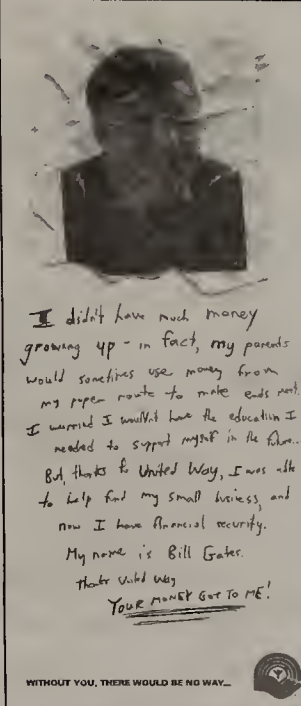 I didn't have much money
growing up - in fact, my parents
would sometimes use money from
my paper route to make ends meet.
I worried I wouldn't have the education I
needed to support myself in the future..
But, thanks to United Way, I was able
to help fund my small business, and
now I have financial security.
My name is Bill Gates.
Thanks United Way
YOUR MONEY GOT TO ME!
WITHOUT YOU, THERE WOULD BE NO WAY...